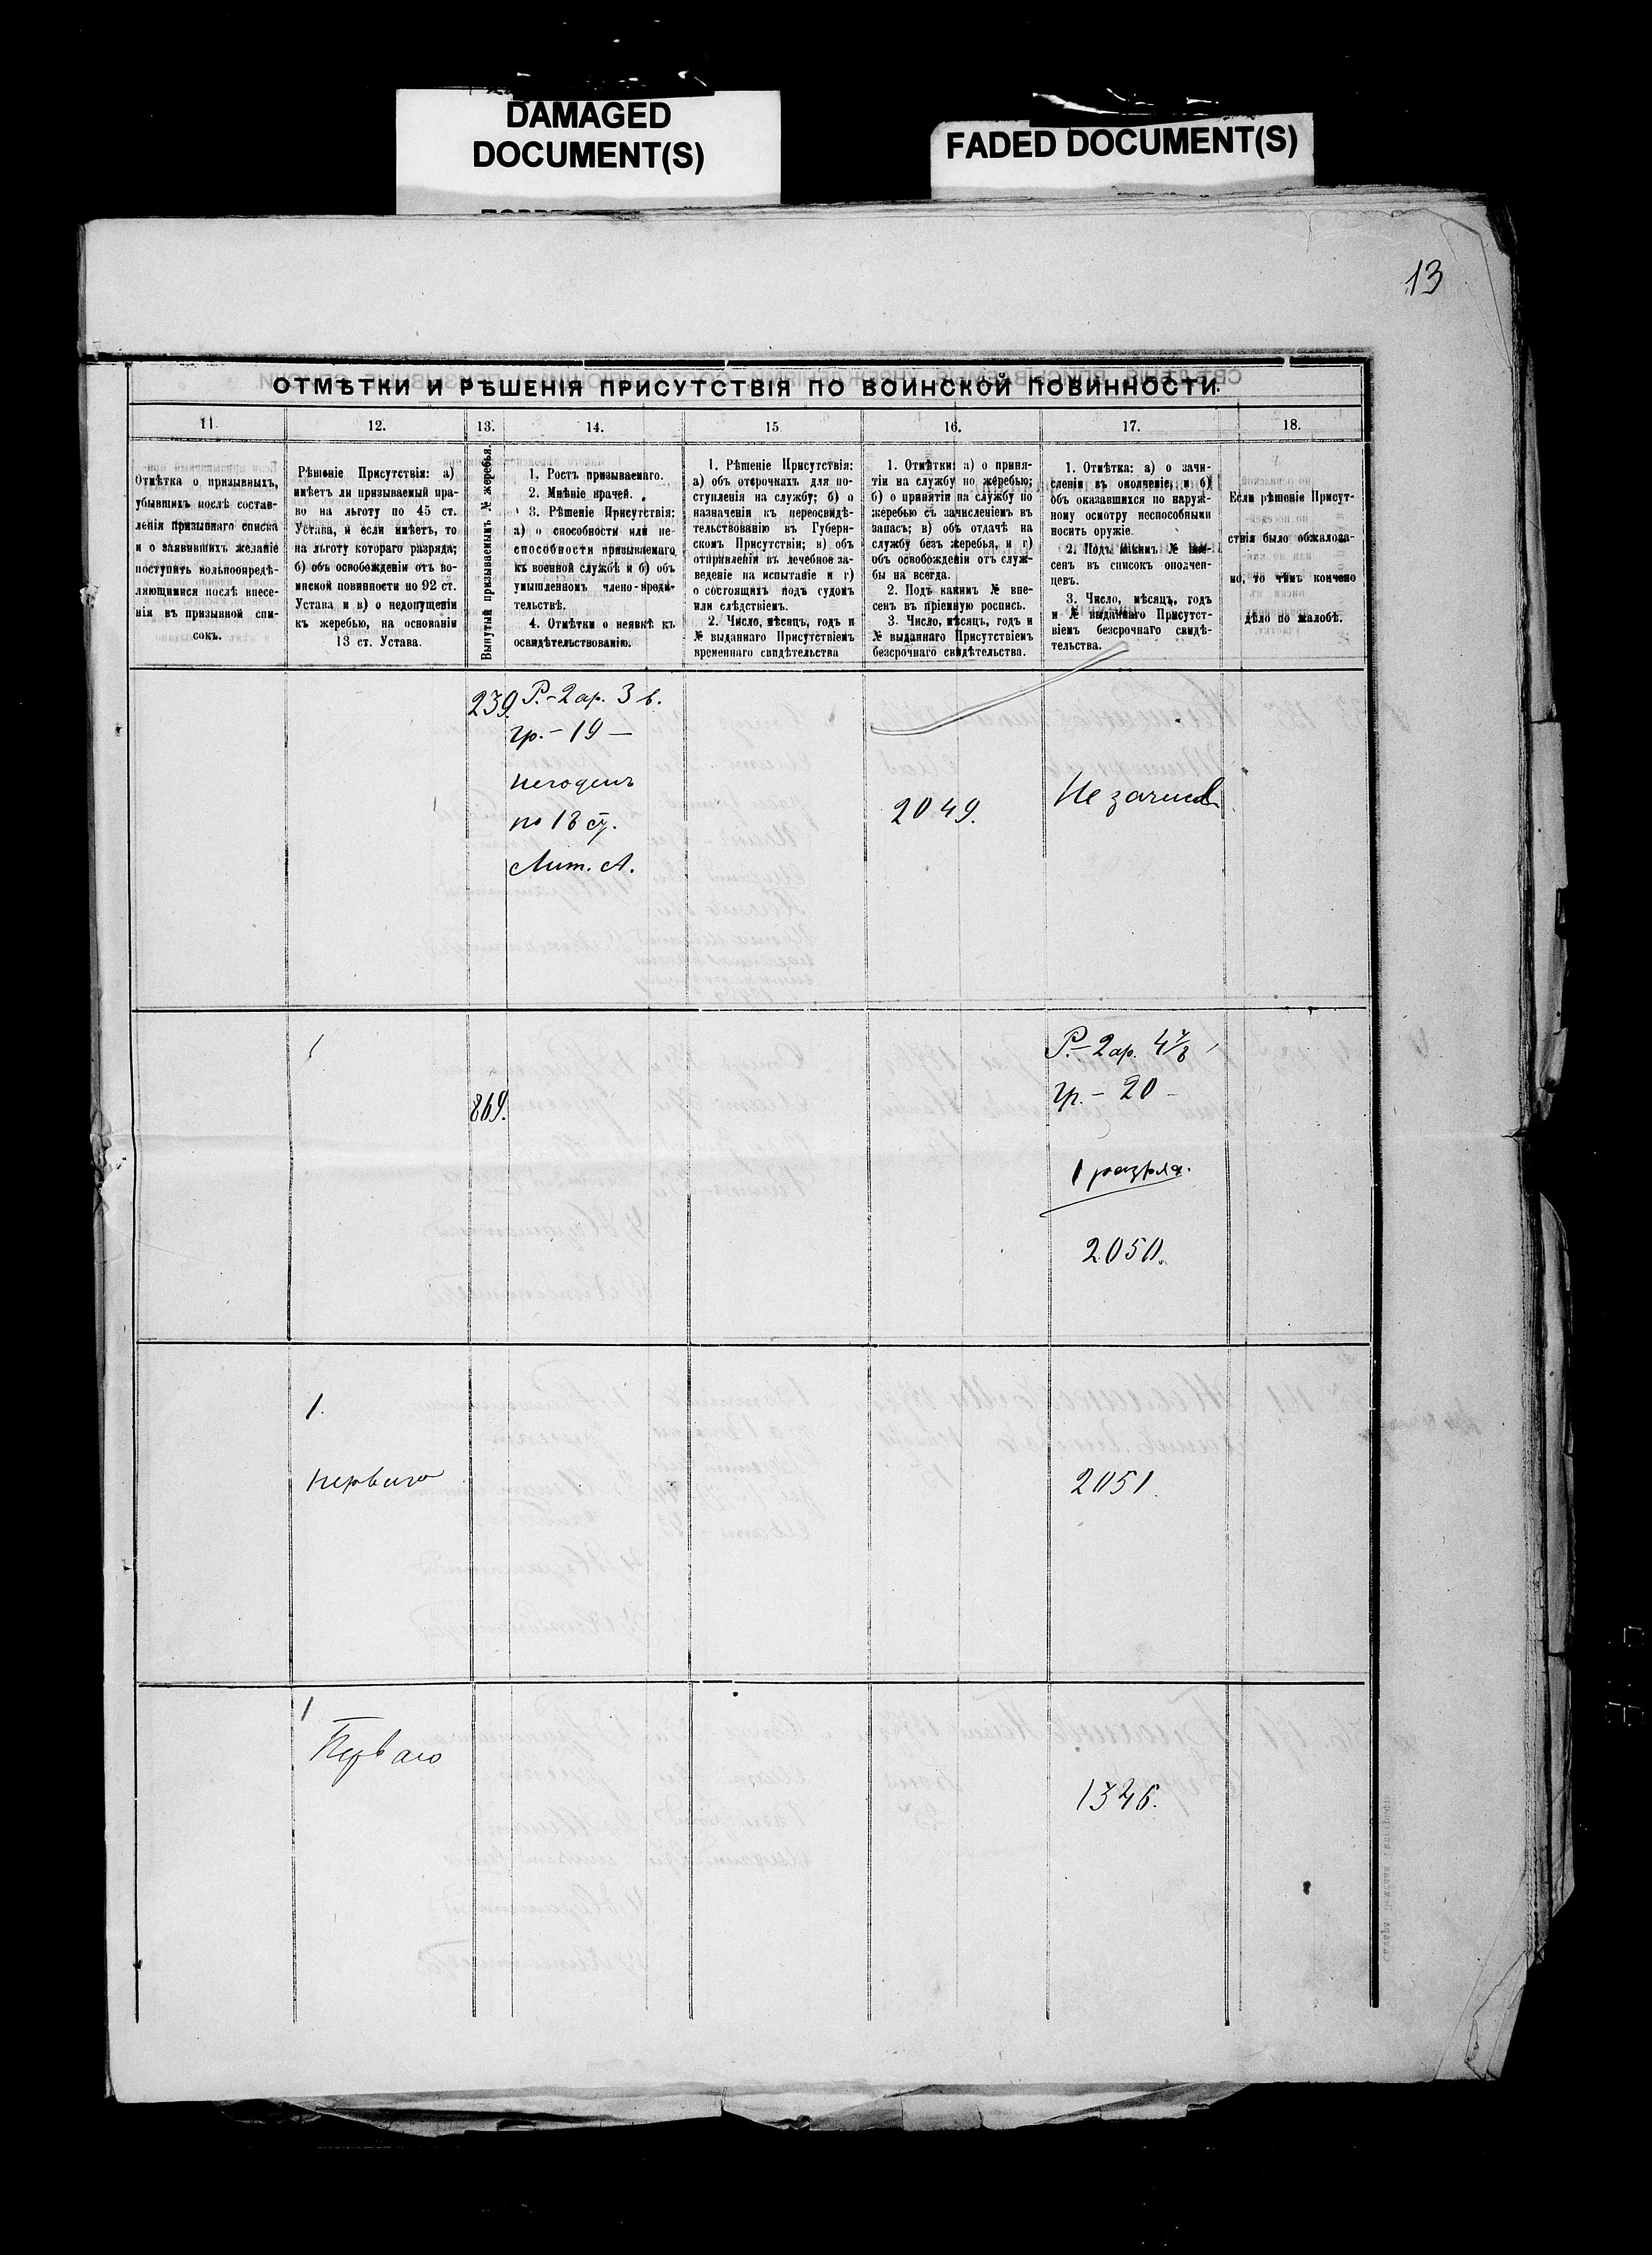 DAMAGED
DOCUMENT(S)
FADED DOCUMENT(S)
13
ОТМѢТКИ И РѢШЕНІЯ ПРИСУТСТВІЯ ПО ВОИНСКОЙ ПОВИННОСТИ.
11.
12.
13.
14.
15.
16.
17.
18.
Отмѣтка о призывныхъ,
убывшихъ послѣ состав-
ленія призывнаго списка
и о заявившихъ желаніе
поступить вольноопредѣ-
ляющимися послѣ внесе-
нія въ призывной спи-
сокъ.
Рѣшеніе Присутствія: а)
имѣетъ ли призываемый пра-
во на льготу по 45 ст.
Устава, и если имѣетъ, то
на льготу котораго разряда;
б) объ освобожденіи отъ во-
инской повинности по 92 ст.
Устава и в) о недопущеніи
къ жеребью, на основаніи
13 ст. Устава.
Вынутый призываемымъ № жеребья.
1. Ростъ призываемаго.
2. Мнѣніе врачей.
3. Рѣшеніе Присутствія:
а) о способности или не-
способности призываемаго
къ военной службѣ и б) объ
умышленномъ члено-вреди-
тельствѣ.
4. Отмѣтки о неявкѣ къ
освидѣтельствованію.
1. Рѣшеніе Присутствія:
а) объ отсрочкахъ для по-
ступленія на службу; б) о
назначеніи къ переосвидѣ-
тельствованію въ Губерн-
скомъ Присутствіи; в) объ
отправленіи въ лечебное за-
веденіе на испытаніе и г)
о состоящихъ подъ судомъ
или слѣдствіемъ.
2. Число, мѣсяцъ, годъ и
№ выданнаго Присутствіемъ
временнаго свидѣтельства
1. Отмѣтки: а) о приня-
тіи на службу по жеребью;
б) о принятіи на службу по
жеребью съ зачисленіемъ въ
запасъ; в) объ отдачѣ на
службу безъ жеребья, и г)
объ освобожденіи отъ служ-
бы на всегда.
2. Подъ какимъ № вне-
сенъ въ пріемную роспись.
3. Число, мѣсяцъ, годъ и
№ выданнаго Присутствіемъ
безсрочнаго свидѣтельства.
1. Отмѣтка: а) о зачи-
сленіи въ ополченіе, и б)
объ оказавшихся по наруж-
ному осмотру неспособными
носить оружіе.
2. Подъ какимъ № вне-
сенъ въ списокъ ополчен-
цевъ.
3. Число, мѣсяцъ, годъ
и № выданнаго Присутст-
віемъ безсрочнаго свидѣ-
тельства.
Если рѣшеніе Присут-
ствія было обжалова-
но, то чѣмъ кончено
дѣло по жалобѣ.
239.
Р.-2 ар. 3 в.
гр.-19-
негоденъ
по 18 ст.
Лит. А.
2049.
Не зачисл
869.
Р.-2 ар. 4 7/8
гр.-20-
1 разряд.
2050.
1.
перваго
2051.
1
Перваго
1326.